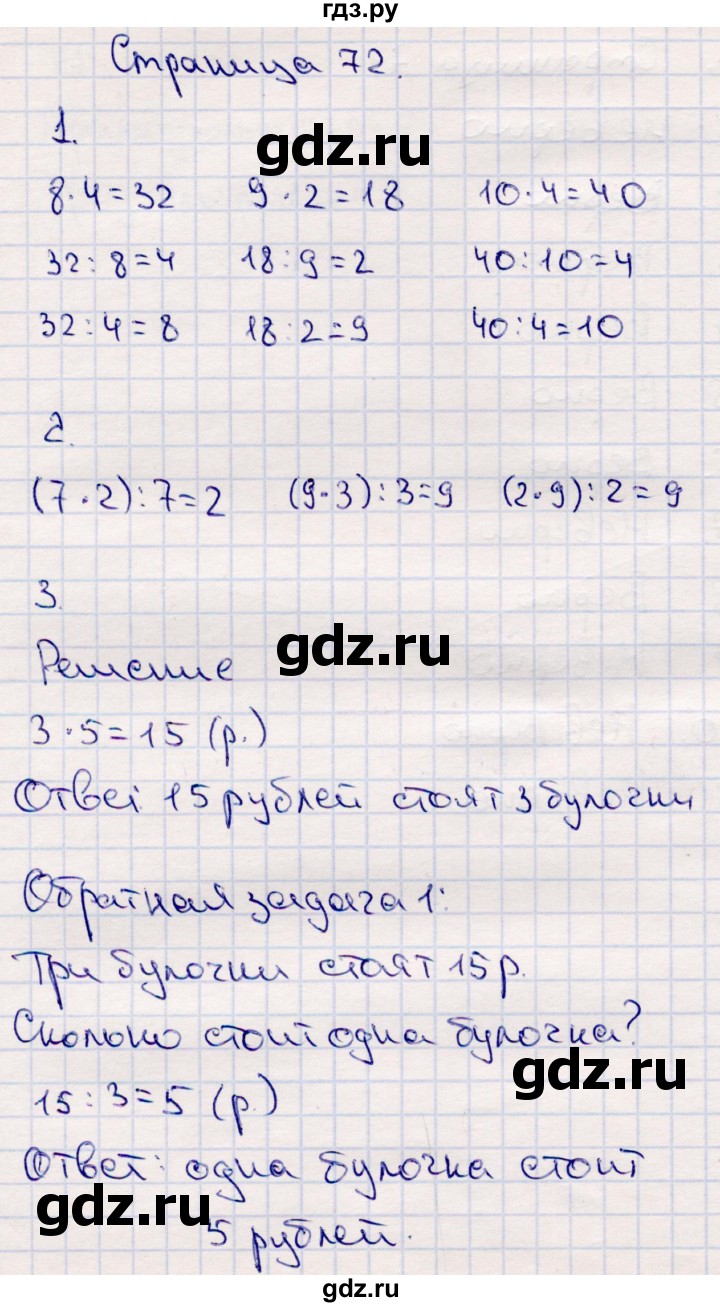 гдз.ру
Страница 72.
1.
gdz.ru
8·4=32 9·2=18 10·4=40
32:8=4 18:9=2 40:10=4
32:4=8 18:2=9 40:4=10
2.
gdz.ru
(7·2):7=2 (9·3):3=9 (2·9):2=9
3.
gdz.ru
Решение
3·5=15 (р.)
Ответ: 15 рублей стоят 3 булочки
Обратная задача 1:
Три булочки стоят 15 р.
Сколько стоит одна булочка?
gdz.ru
15:3=5 (р.)
Ответ: одна булочка стоит
gdz.ru
5 рублей.
gdz.ru